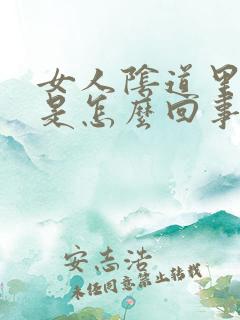 女人陰道里
是怎麼回事
安志浩
未经同意禁止转载